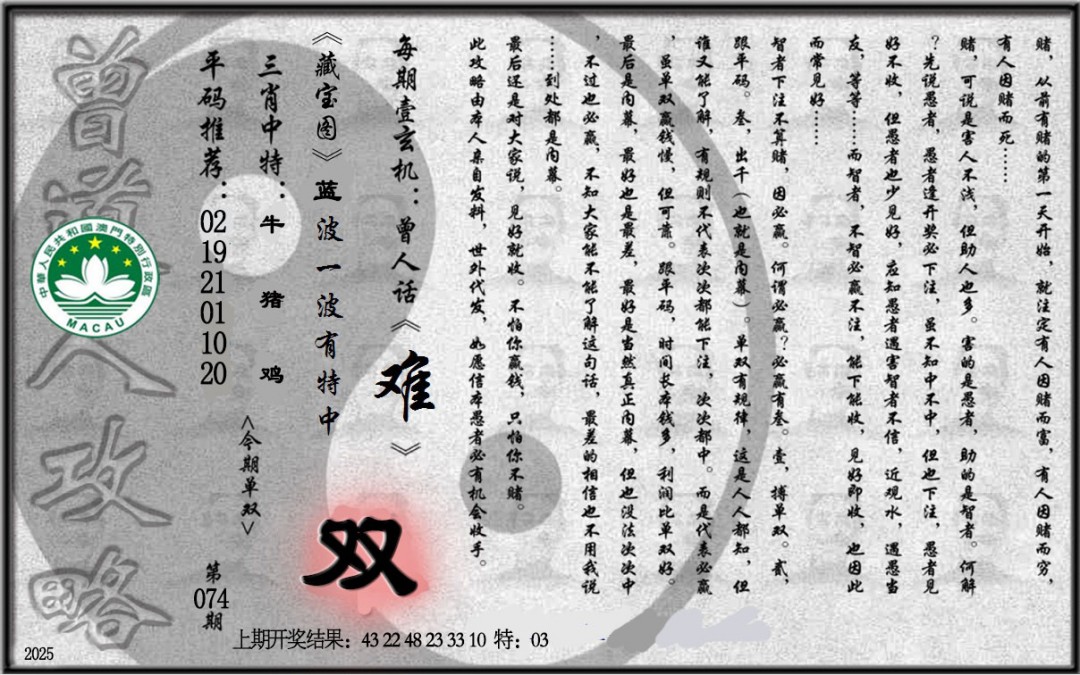 赌，从前有赌的第一天开始，就注定有人因赌而富，有人因赌而穷，
有人因赌而死……
赌，可说是害人不浅，但助人也多。害的是愚者，助的是智者。何解
？先说愚者，愚者逢开奖必下注，虽不知中不中，但也下注，愚者见
好不收，但愚者也少见好，应知愚者遇害智者不信，近观水，遇愚当
友，等等……而智者，不智必赢不注，能下能收，见好即收，也因此
而常见好……
智者下注不算赌，因必赢。何谓必赢？必赢有叁。壹，搏单双。贰，
跟平码。叁，出千（也就是内幕）。单双有规律，这是人人都知，但
谁又能了解，有规则不代表次次都能下注，次次都中。而是代表必赢
，虽单双赢钱慢，但可靠。跟平码，时间长本钱多，利润比单双好。
最后是内幕，最好也是最差，最好是当然真正内幕，但也没法次次中
，不过也必赢，不知大家能不能了解这句话，最差的相信也不用我说
……到处都是内幕。
最后还是对大家说，见好就收。不怕你赢钱，只怕你不赌。
此攻略由本人亲自发料，世外代发，如愿信本愚者必有机会收手。
每期壹玄机：曾人话《难》
《藏宝图》蓝波一波有特中
三肖中特：牛 猪 鸡
<今期单双>
双
平码推荐：02 19 21 01 10 20
第074期
曾道人攻略
中華人民共和國澳門特別行政區
MACAU
上期开奖结果：43 22 48 23 33 10 特：03
2025